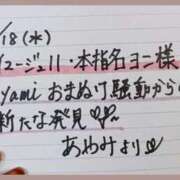 /18(水)
ュージュ11・本指名ヨニ様
yamiおまぬけ騒動からの
新たな発見♡
あやみより